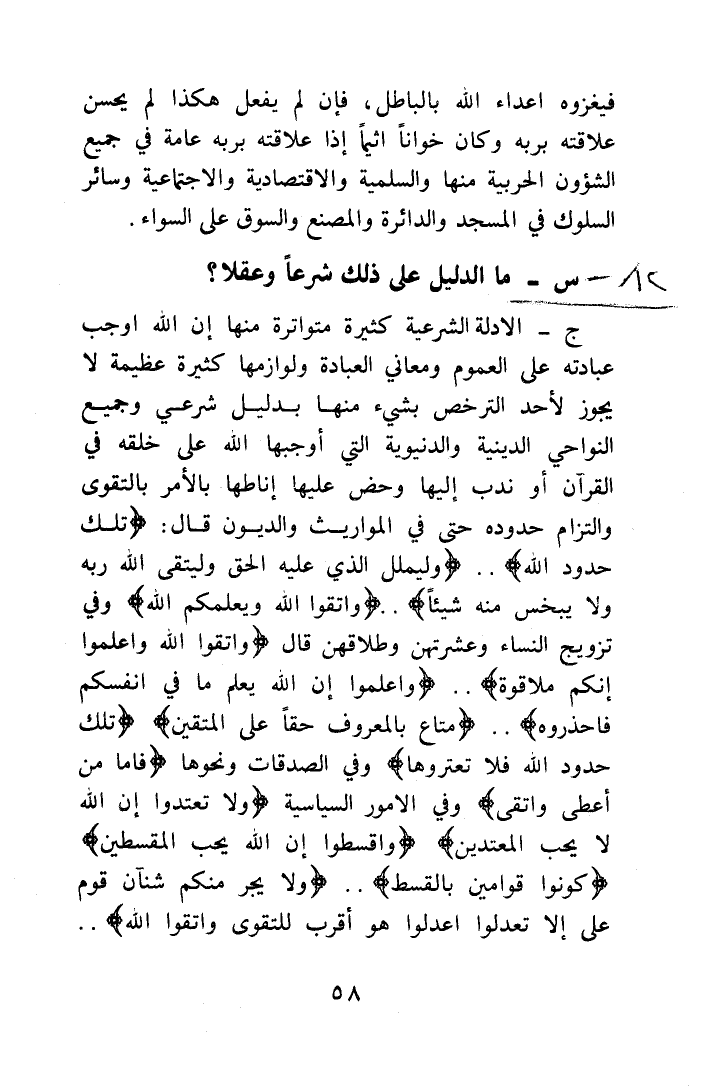 فيغزوه اعداء الله بالباطل، فإن لم يفعل هكذا لم يحسن
علاقته بربه وكان خواناً اثيماً إذا علاقته بربه عامة في جميع
الشؤون الحربية منها والسلمية والاقتصادية والاجتماعية وسائر
السلوك في المسجد والدائرة والمصنع والسوق على السواء .
٨٢ - س - ما الدليل على ذلك شرعاً وعقلا؟
ج - الادلة الشرعية كثيرة متواترة منها إن الله اوجب
عبادته على العموم ومعاني العبادة ولوازمها كثيرة عظيمة لا
يجوز لأحد الترخص بشيء منهـا بـدليـل شرعـي وجميـع
النواحي الدينية والدنيوية التي أوجبها الله على خلقه في
القرآن أو ندب إليها وحض عليها إناطها بالأمر بالتقوى
والتزام حدوده حتى في المواريـث والديـون قـال: ﴿تلـك
حدود الله﴾ .. ﴿وليملل الذي عليه الحق وليتقى الله ربه
ولا يبخس منه شيئاً﴾ ..﴿واتقوا الله ويعلمكم الله﴾ وفي
تزويج النساء وعشرتهن وطلاقهن قال ﴿واتقوا الله واعلموا
إنكم ملاقوة﴾ .. ﴿واعلموا إن الله يعلم ما في انفسكم
فاحذروه﴾ .. ﴿متاع بالمعروف حقاً على المتقين﴾ ﴿تلك
حدود الله فلا تعتروها﴾ وفي الصدقات ونحوها ﴿فاما من
أعطى واتقى﴾ وفي الامور السياسية ﴿ولا تعتدوا إن الله
لا يحب المعتدين﴾ ﴿واقسطوا إن الله يحب المقسطين﴾
﴿كونوا قوامين بالقسط﴾ .. ﴿ولا يجر منكم شنآن قوم
على إلا تعدلوا اعدلوا هو أقرب للتقوى واتقوا الله﴾ ..
٥٨